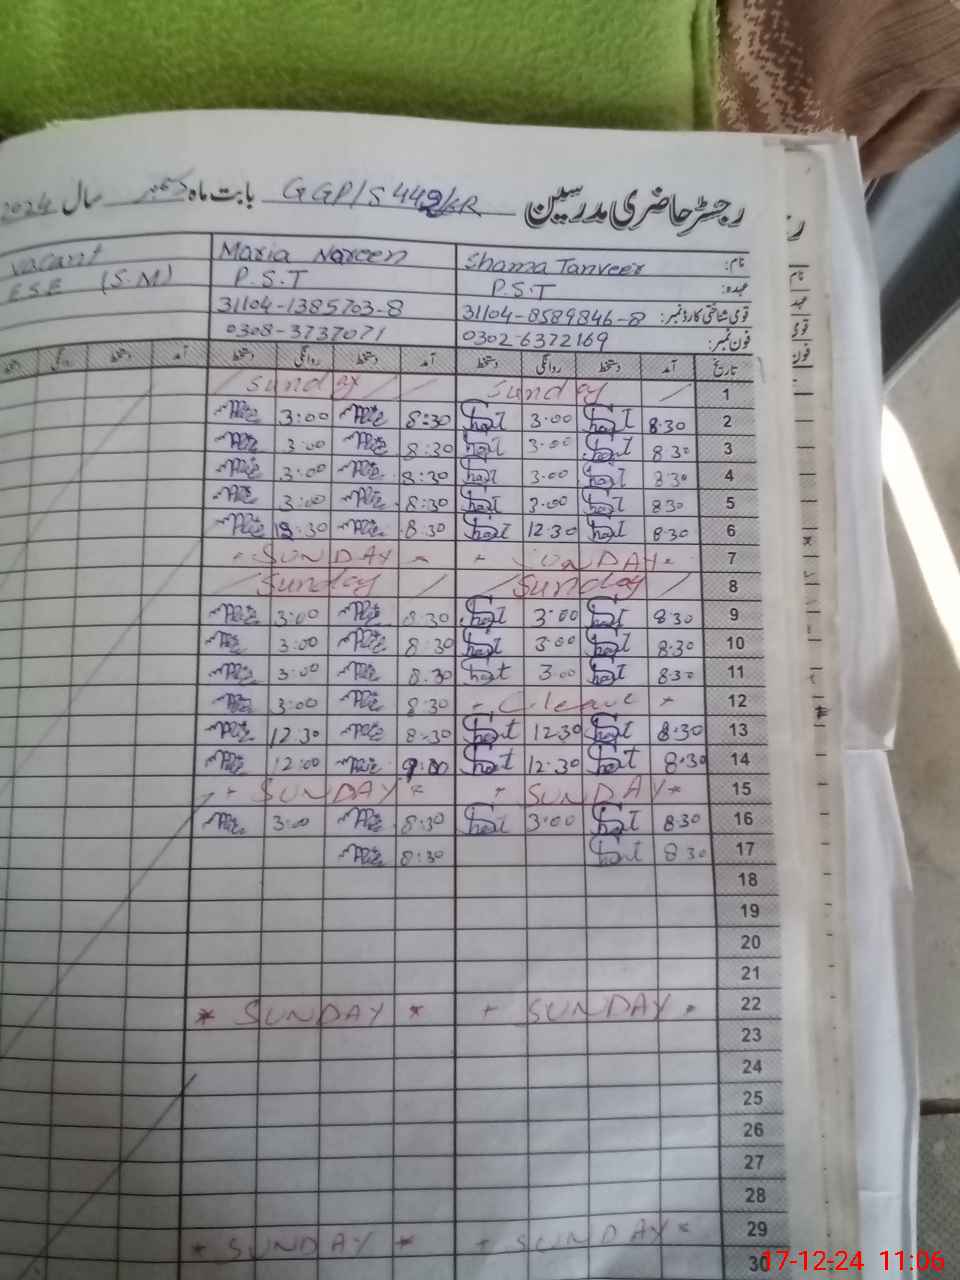 رجسٹر حاضری مدرسین GGP/S 449/6R بابت ماہ دسمبر سال 2024
نام: Shama Tanveer Maria Noreen Vacant
عہدہ: P.S.T P.S.T E.S.E (S.M)
قومی شناختی کارڈ نمبر: 31104-8589846-8 31104-1385703-8
فون نمبر: 0302-6372169 0308-3737071
تاریخ آمد دستخط روانگی دستخط آمد دستخط روانگی دستخط آمد دستخط روانگی دستخط
1 Sunday Sunday
2 8:30 3:00 8:30 3:00
3 8:30 3:00 8:30 3:00
4 8:30 3:00 8:30 3:00
5 8:30 3:00 8:30 3:00
6 8:30 12:30 8:30 12:30
7 SUNDAY SUNDAY
8 Sunday Sunday
9 8:30 3:00 8:30 3:00
10 8:30 3:00 8:30 3:00
11 8:30 3:00 8:30 3:00
12 C.leave 8:30 3:00
13 8:30 12:30 8:30 12:30
14 8:30 12:30 12:00
15 SUNDAY SUNDAY
16 8:30 3:00 8:30 3:00
17 8:30 8:30
18
19
20
21
22 SUNDAY SUNDAY
23
24
25
26
27
28
29 SUNDAY SUNDAY
30
17-12-24 11:06